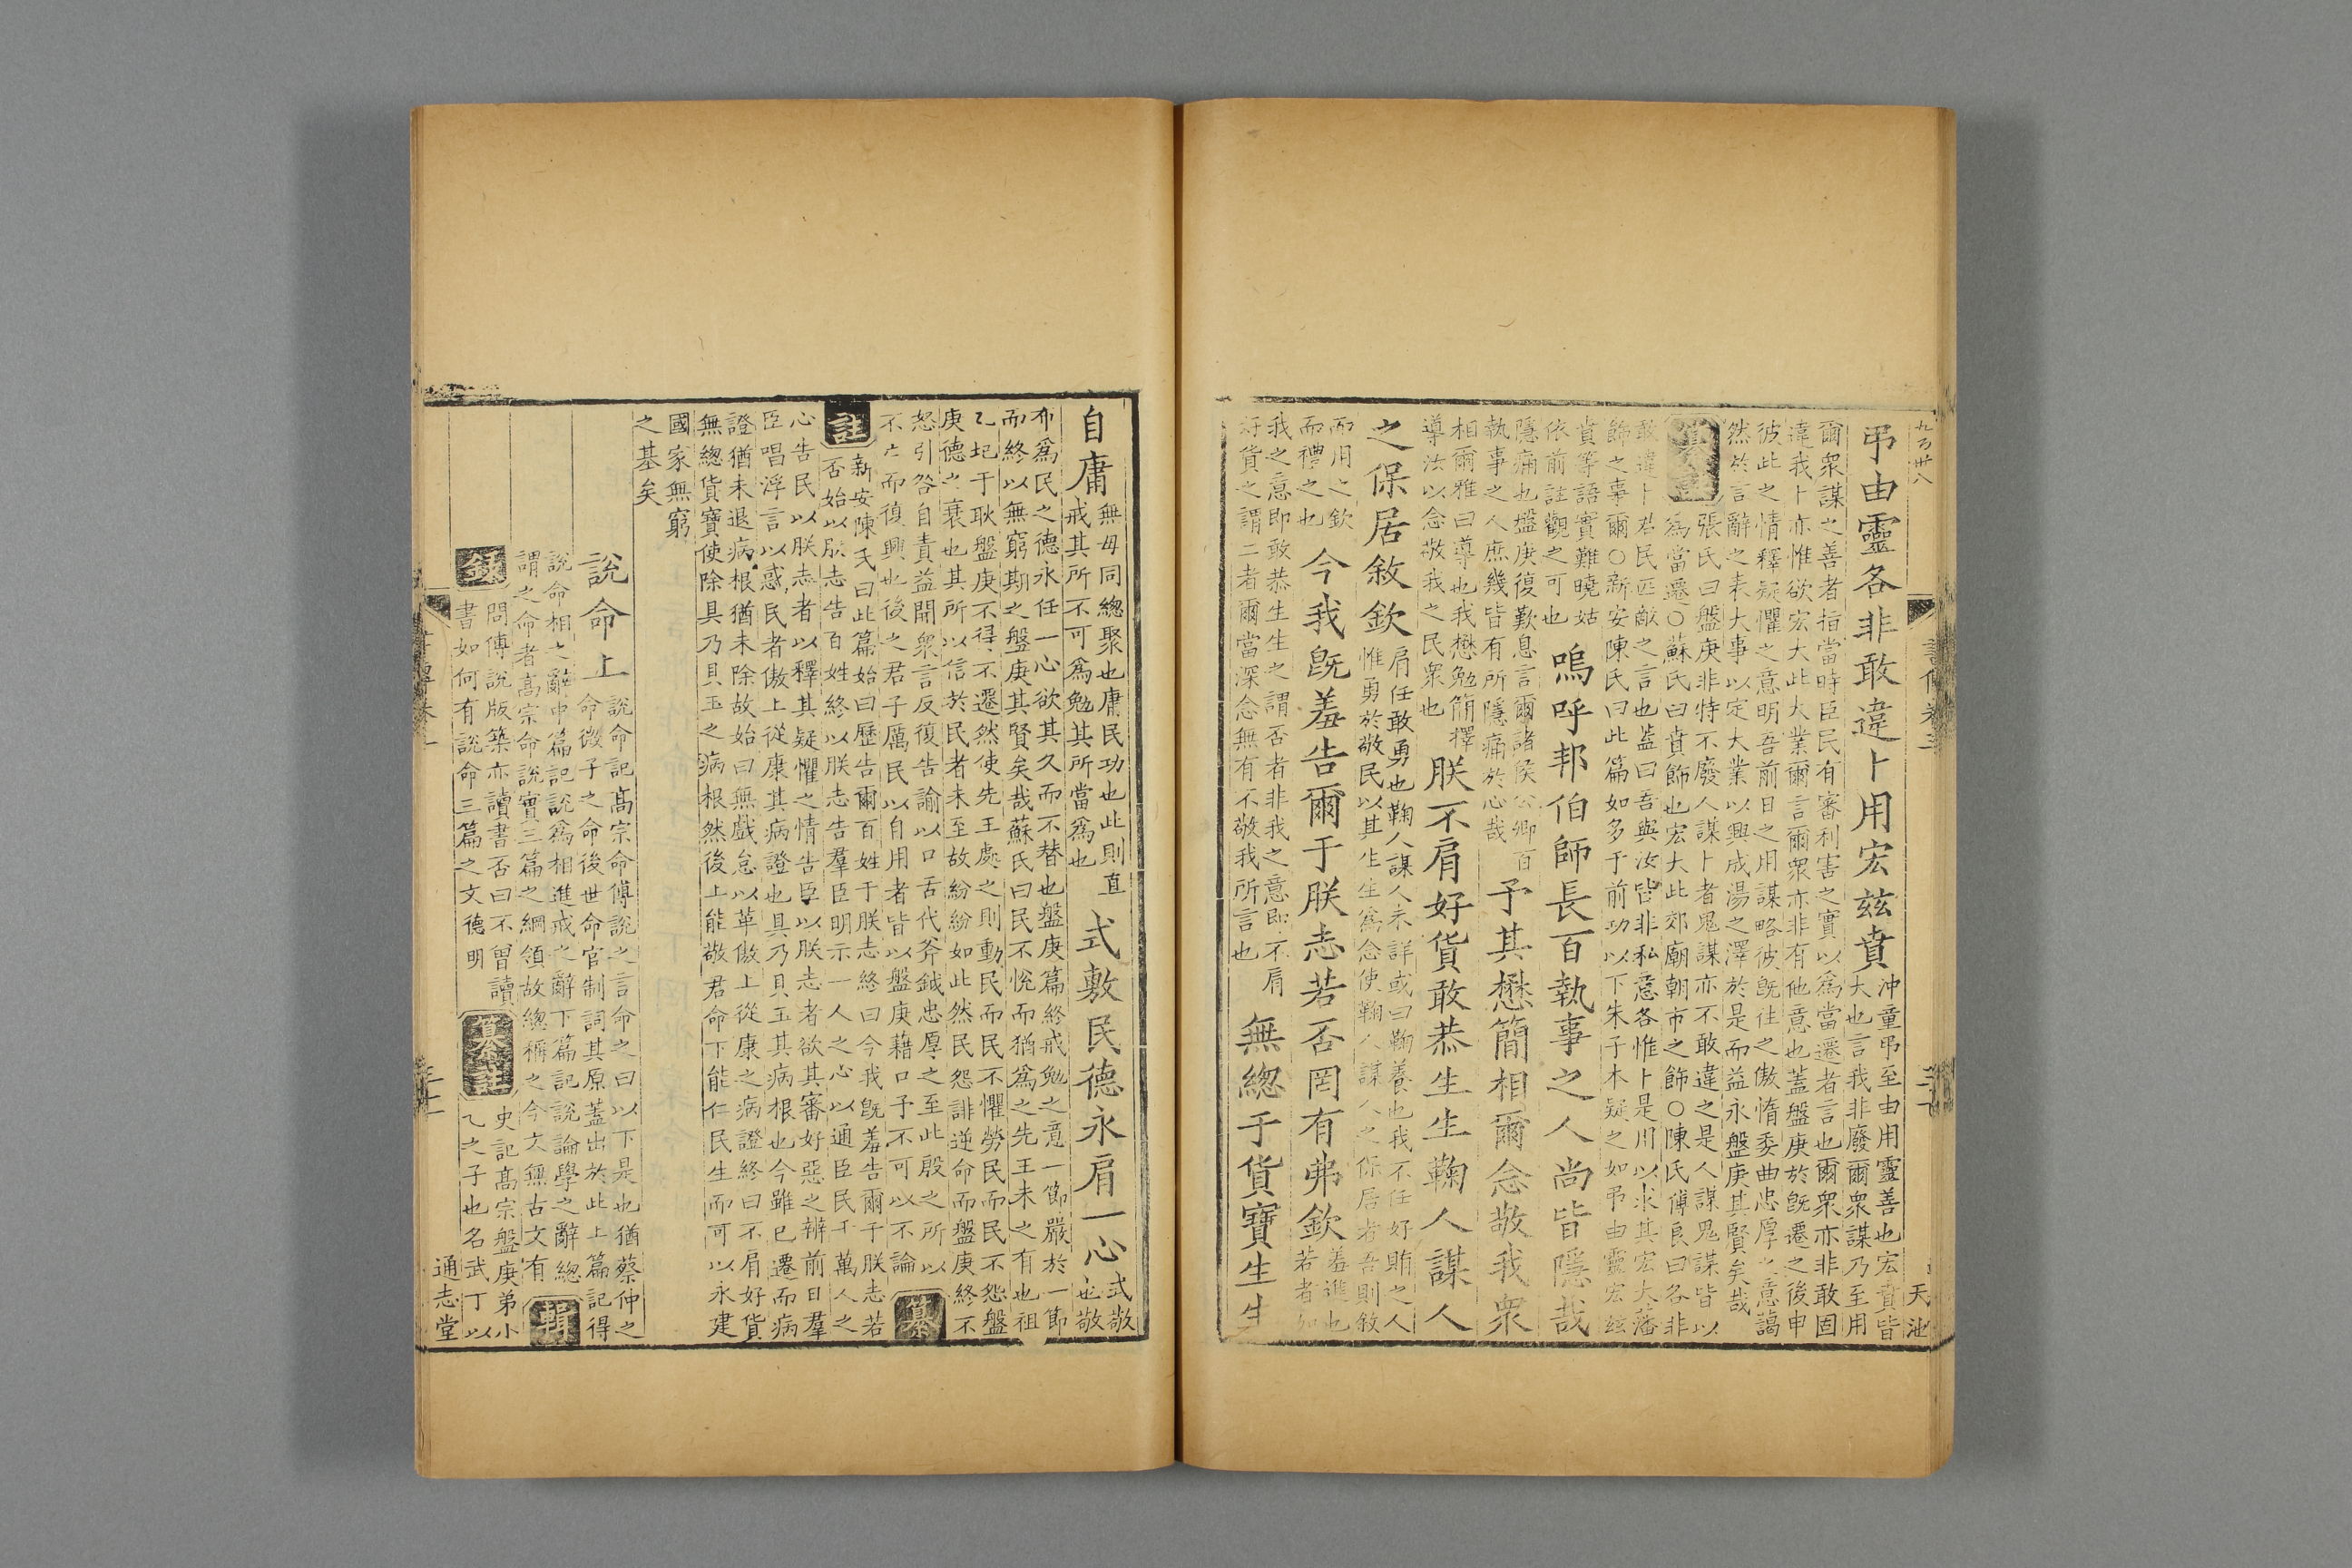 九百卅八
書傳卷三
三十
天池
弔由靈各非敢違卜用宏茲賁
沖童弔至由用靈善也宏賁皆
大也言我非廢爾衆謀乃至用
爾衆謀之善者指當時臣民有審利害之實以爲當遷者言也爾衆亦非敢固
違我卜亦惟欲宏大此大業爾言爾衆亦非有他意也蓋盤庚於旣遷之後申
彼此之情釋疑懼之意明吾前日之用謀略彼旣往之傲惰委曲忠厚之意藹
然於言辭之表大事以定大業以興成湯之澤於是而益永盤庚其賢矣哉
纂註
張氏曰盤庚非特不廢人謀卜者鬼謀亦不敢違之是人謀鬼謀皆以
爲當遷○蘇氏曰賁飾也宏大此郊廟朝市之飾○陳氏傅良曰各非
敢違卜君民匹敵之言也葢曰吾與汝皆非私意各惟卜是用以求其宏大藩
飾之事爾○新安陳氏曰此篇如多于前功以下朱子本疑之如弔由靈宏玆
賁等語實難曉姑
依前註觀之可也
嗚呼邦伯師長百執事之人尚皆隱哉
隱痛也盤庚復歎息言爾諸侯公卿百
執事之人庶幾皆有所隱痛於心哉
予其懋簡相爾念敬我衆
相爾雅曰導也我懋勉簡擇
導汝以念敬我之民衆也
朕不肩好貨敢恭生生鞠人謀人
之保居敘欽
肩任敢勇也鞠人謀人未詳或曰鞠養也我不任好賄之人
惟勇於敬民以其生生爲念使鞠人謀人之保居者吾則敘
而用之欽
而禮之也
今我旣羞告爾于朕志若否罔有弗欽
羞進也
若者如
我之意即敢恭生生之謂否者非我之意即不肩
好貨之謂二者爾當深念無有不敬我所言也
無總于貨寶生生
自庸
無毋同總聚也庸民功也此則直
戒其所不可爲勉其所當爲也
式敷民德永肩一心
式敬
也敬
布爲民之德永任一心欲其久而不替也盤庚篇終戒勉之意一節嚴於一節
而終以無窮期之盤庚其賢矣哉蘇氏曰民不悅而猶爲之先王未之有也祖
乙圮于耿盤庚不得不遷然使先王處之則動民而民不懼勞民而民不怨盤
庚德之衰也其所以信於民者未至故紛紛如此然民怨誹逆命而盤庚終不
怒引咎自責益開衆言反復告諭以口舌代斧鉞忠厚之至此殷之所以
不亡而復興也後之君子厲民以自用者皆以盤庚藉口予不可以不論
纂
註
新安陳氏曰此篇始曰歷告爾百姓于朕志終曰今我旣羞告爾于朕志若
否始以朕志告百姓終以朕志告羣臣明示一人之心以通臣民千萬人之
心告民以朕志者以釋其疑懼之情告臣以朕志者欲其審好惡之辨前日羣
臣唱浮言以惑民者傲上從康其病證也具乃貝玉其病根也今雖已遷而病
證猶未退病根猶未除故始曰無戲怠以革傲上從康之病證終曰不肩好貨
無總貨寶使除具乃貝玉之病根然後上能敬君命下能仁民生而可以永建
國家無窮
之基矣
說命上
說命記高宗命傅說之言命之曰以下是也猶蔡仲之
命微子之命後世命官制詞其原蓋出於此上篇記得
說命相之辭中篇記說爲相進戒之辭下篇記說論學之辭總
謂之命者高宗命說實三篇之綱領故總稱之今文無古文有
輯
錄
問傅說版築亦讀書否曰不曾讀
書如何有說命三篇之文德明
纂註
史記高宗盤庚弟小
乙之子也名武丁以
通志堂